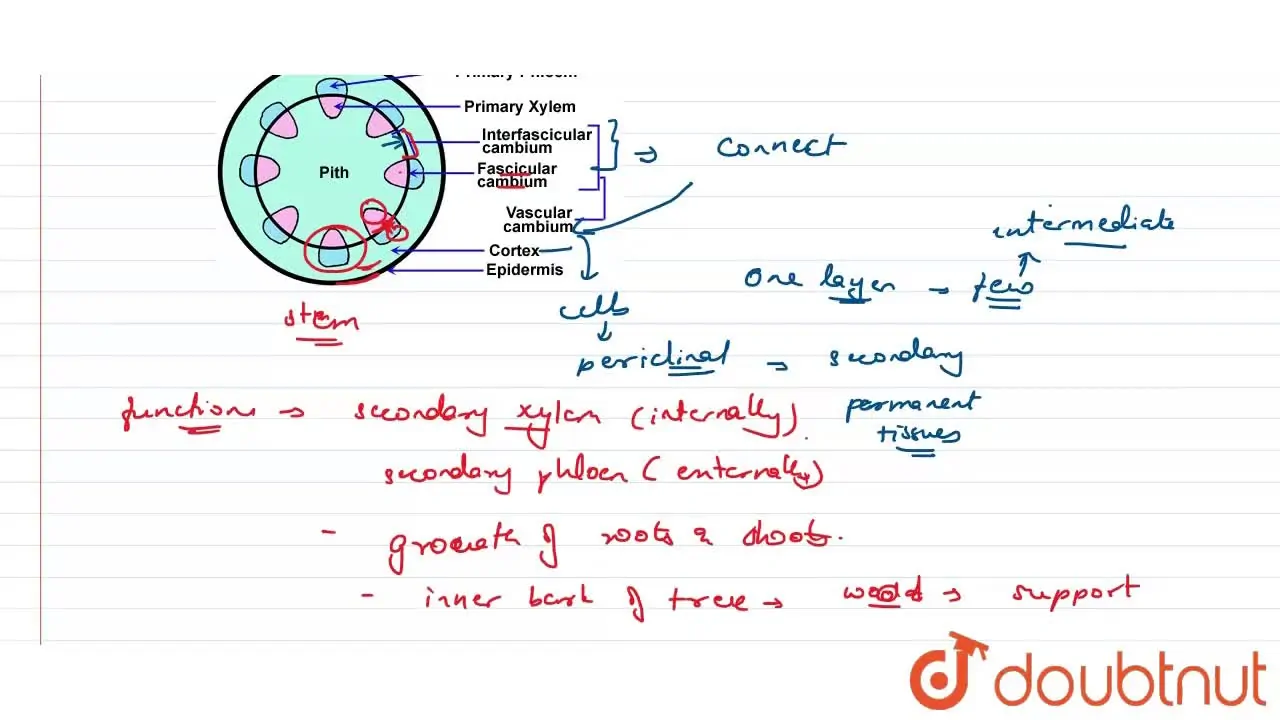 Primary Phloem
Primary Xylem
Interfascicular
cambium
Pith
Fascicular
cambium
Vascular
cambium
Cortex
Epidermis
connect
intermediate
one layer → few
cells
stem
periclinal → secondary
permanent
tissues
functions → secondary xylem (internally)
secondary phloem (externally)
- growth of roots & shoots.
- inner bark of tree → wood → support
doubtnut